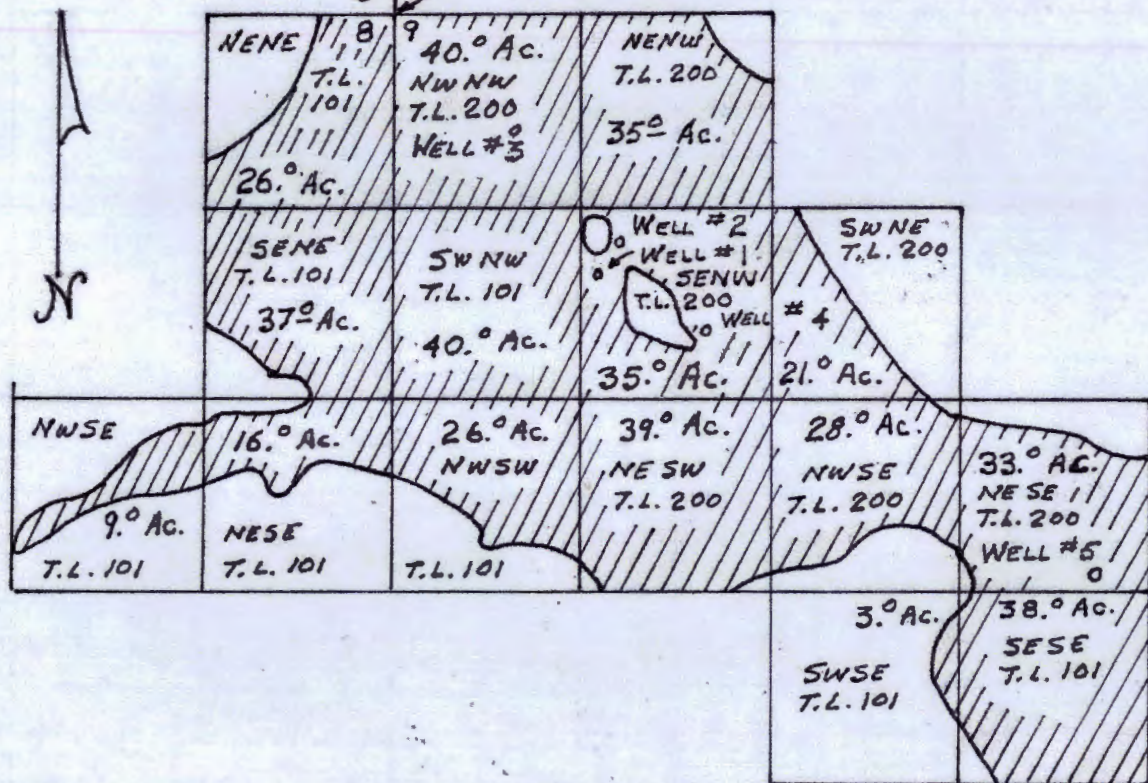 NENE
8
T.L.
101
26.° Ac.
9
40.° Ac.
NWNW
T.L. 200
WELL #3
NENW
T.L. 200
35° Ac.
N
SENE
T.L. 101
37° Ac.
SWNW
T.L. 101
40.° Ac.
WELL #2
WELL #1
SENW
T.L. 200
WELL #4
35.° Ac.
SWNE
T.L. 200
21.° Ac.
NWSE
9.° Ac.
T.L. 101
16.° Ac.
NESE
T.L. 101
26.° Ac.
NWSW
T.L. 101
39.° Ac.
NE SW
T.L. 200
28.° Ac.
NWSE
T.L. 200
33.° Ac.
NESE
T.L. 200
WELL #5
3.° Ac.
SWSE
T.L. 101
38.° Ac.
SESE
T.L. 101